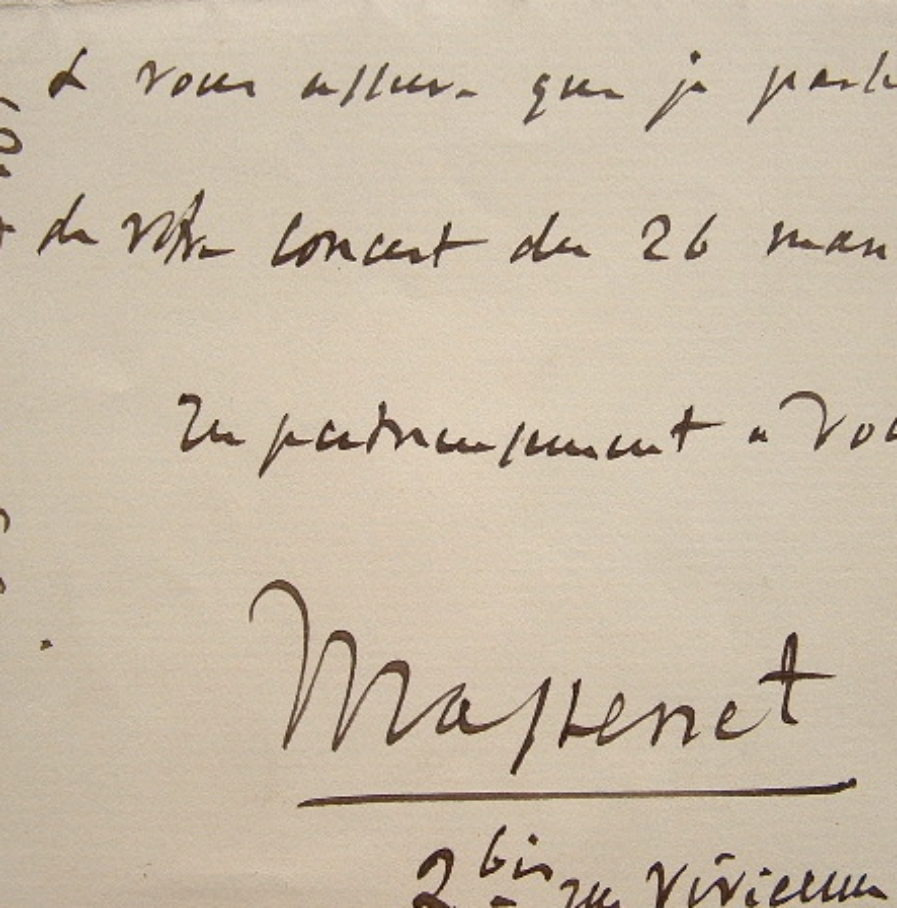 & vous assure que je parle
de votre concert du 26 mars
Empressement à vou
Massenet
2 bis rue Vivienne